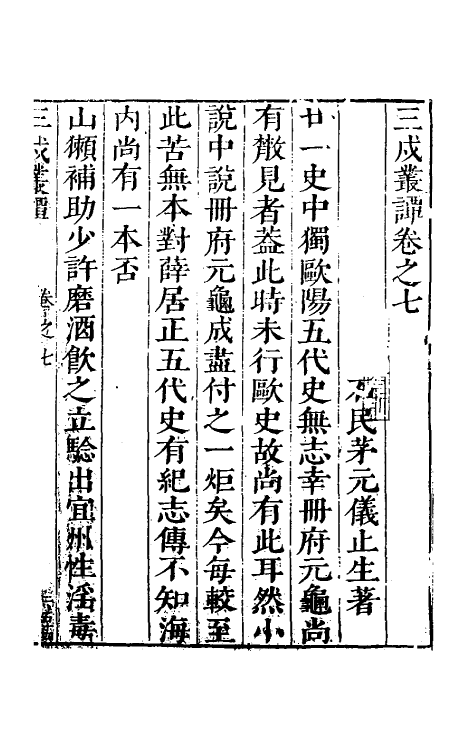 三戍叢譚卷之七
民茅元儀止生著
廿一史中獨歐陽五代史無志幸冊府元龜尚
有散見者葢此時未行歐史故尚有此耳然小
說中說冊府元龜成盡付之一炬矣今每較至
此苦無本對薛居正五代史有紀志傳不知海
内尚有一本否
山獺補助少許磨酒飮之立驗出宜州性淫毒
三戍叢譚 卷之七